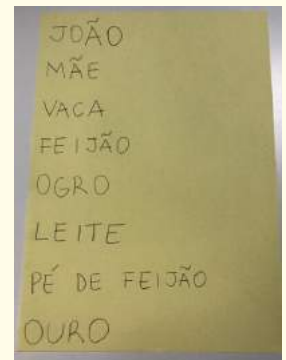 JOÃO
MÃE
VACA
FEIJÃO
OGRO
LEITE
PÉ DE FEIJÃO
OURO